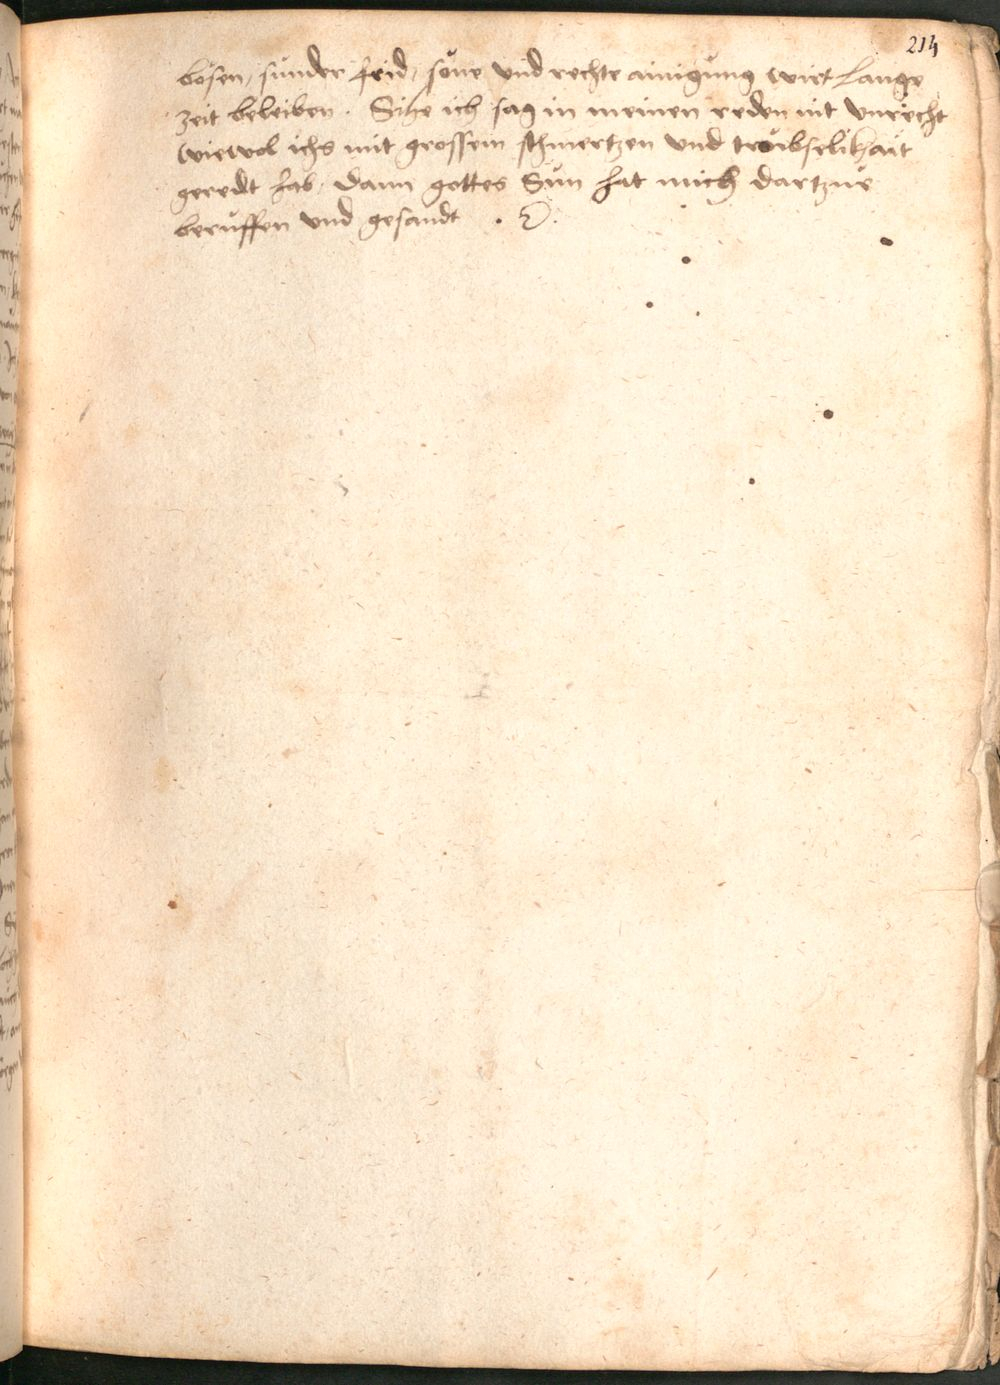 214
bosen, sunder frid, söne vnd rechte ainigung wirt lange
zeit beleiben. Sihe ich sag in meinen reden nit vnrecht
wiewol ichs mit grossem schmertzen vnd trůbselikait
geredt hab, dann gottes Sun hat mich dartzue
beruffen vnd gesandt.